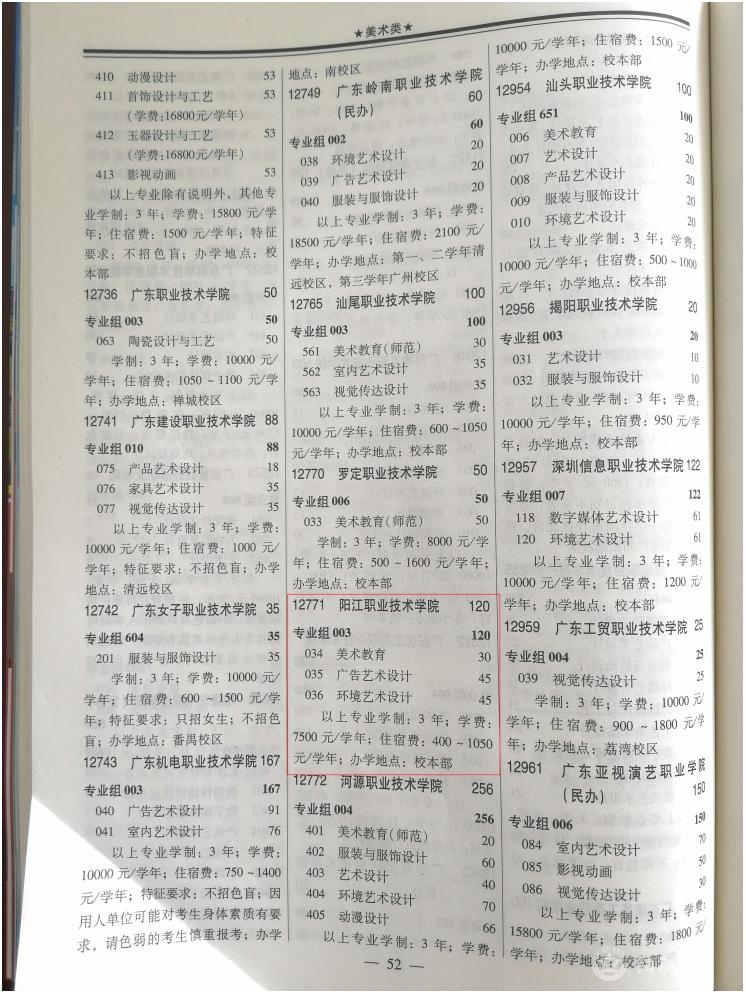 ★美术类★
410 动漫设计 53
411 首饰设计与工艺 53
(学费:16800元/学年)
412 玉器设计与工艺 53
(学费:16800元/学年)
413 影视动画 53
以上专业除有说明外，其他专
业学制：3 年；学费：15800 元/学
年；住宿费：1500 元/学年；特征
要求：不招色盲；办学地点：校
本部
12736 广东职业技术学院 50
专业组 003 50
063 陶瓷设计与工艺 50
学制：3 年；学费：10000 元/
学年；住宿费：1050～1100 元/学
年；办学地点：禅城校区
12741 广东建设职业技术学院 88
专业组 010 88
075 产品艺术设计 18
076 家具艺术设计 35
077 视觉传达设计 35
以上专业学制：3 年；学费：
10000 元/学年；住宿费：1000 元/
学年；特征要求：不招色盲；办学
地点：清远校区
12742 广东女子职业技术学院 35
专业组 604 35
201 服装与服饰设计 35
学制：3 年；学费：10000 元/
学年；住宿费：600～1500 元/学
年；特征要求：只招女生；不招色
盲；办学地点：番禺校区
12743 广东机电职业技术学院 167
专业组 003 167
040 广告艺术设计 91
041 室内艺术设计 76
以上专业学制：3 年；学费：
10000 元/学年；住宿费：750～1400
元/学年；特征要求：不招色盲；因
用人单位可能对考生身体素质有要
求，请色弱的考生慎重报考；办学
地点：南校区
12749 广东岭南职业技术学院
(民办) 60
专业组 002 60
038 环境艺术设计 20
039 广告艺术设计 20
040 服装与服饰设计 20
以上专业学制：3 年；学费：
18500 元/学年；住宿费：2100 元/
学年；办学地点：第一、二学年清
远校区，第三学年广州校区
12765 汕尾职业技术学院 100
专业组 003 100
561 美术教育(师范) 30
562 室内艺术设计 35
563 视觉传达设计 35
以上专业学制：3 年；学费：
10000 元/学年；住宿费：600～1050
元/学年；办学地点：校本部
12770 罗定职业技术学院 50
专业组 006 50
033 美术教育(师范) 50
学制：3 年；学费：8000 元/学
年；住宿费：500～1600 元/学年；
办学地点：校本部
12771 阳江职业技术学院 120
专业组 003 120
034 美术教育 30
035 广告艺术设计 45
036 环境艺术设计 45
以上专业学制：3 年；学费：
7500 元/学年；住宿费：400～1050
元/学年；办学地点：校本部
12772 河源职业技术学院 256
专业组 004 256
401 美术教育(师范) 20
402 服装与服饰设计 60
403 艺术设计 40
404 环境艺术设计 70
405 动漫设计 66
以上专业学制：3 年；学费：
10000 元/学年；住宿费：1500 元/
学年；办学地点：校本部
12954 汕头职业技术学院 100
专业组 651 100
006 美术教育 20
007 艺术设计 20
008 产品艺术设计 20
009 服装与服饰设计 20
010 环境艺术设计 20
以上专业学制：3 年；学费：
10000 元/学年；住宿费：500～1000
元/学年；办学地点：校本部
12956 揭阳职业技术学院 20
专业组 003 20
031 艺术设计 10
032 服装与服饰设计 10
以上专业学制：3 年；学费：
10000 元/学年；住宿费：950 元/学
年；办学地点：校本部
12957 深圳信息职业技术学院 122
专业组 007 122
118 数字媒体艺术设计 61
120 环境艺术设计 61
以上专业学制：3 年；学费：
10000 元/学年；住宿费：1200 元/
学年；办学地点：校本部
12959 广东工贸职业技术学院 25
专业组 004 25
039 视觉传达设计 25
学制：3 年；学费：10000 元/
学年；住宿费：900～1800 元/学
年；办学地点：荔湾校区
12961 广东亚视演艺职业学院
(民办) 150
专业组 006 150
084 室内艺术设计 70
085 影视动画 50
086 视觉传达设计 30
以上专业学制：3 年；学费：
15800 元/学年；住宿费：1800 元/
学年；办学地点：校本部
— 52 —